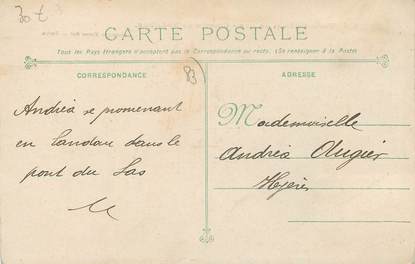 30 €
CARTE POSTALE
Tous les Pays étrangers n'acceptent pas la Correspondance au recto. (Se renseigner à la Poste)
CORRESPONDANCE
83
ADRESSE
Andréa se promenant
en Landau dans le
pont du Las
Mademoiselle
Andréa Augier
Hyères